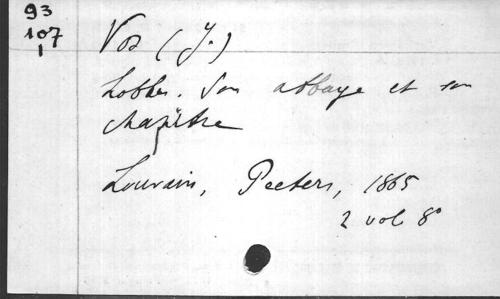 93
107
1
Vos (J.)
Lobbes. Son abbaye et son
chapitre
Louvain, Peeters, 1865
2 vol 8°